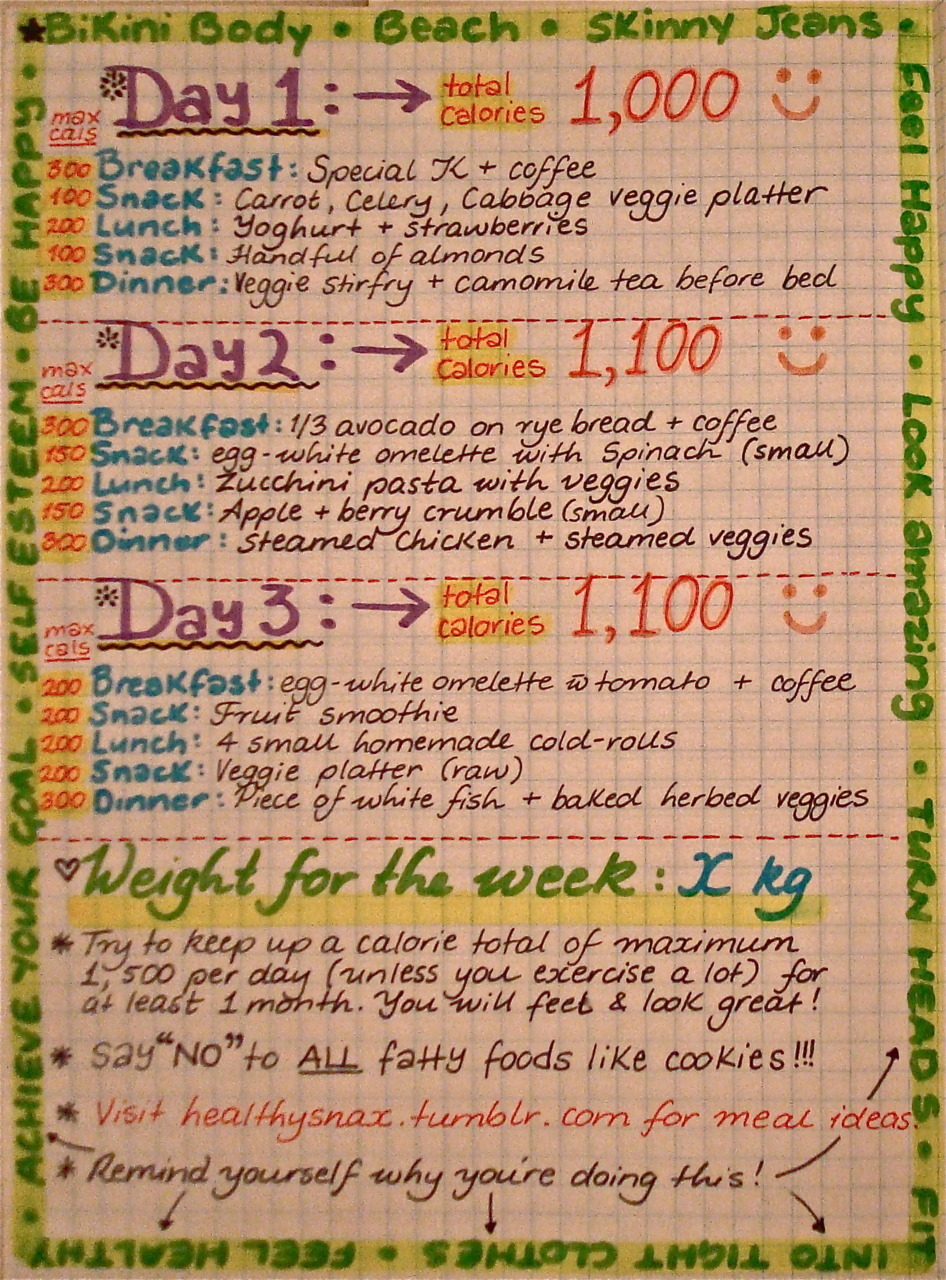 ★BiKini Body • Beach • Skinny Jeans •
Feel Happy • Look amazing • TURN HEADS • FIT
INTO TIGHT CLOTHES • FEEL HEALTHY
• ACHIEVE YOUR GOAL • SELF ESTEEM • BE HAPPY •
*Day 1: → total calories 1,000
max cals
300 Breakfast: Special K + coffee
100 Snack: Carrot, Celery, Cabbage veggie platter
200 Lunch: Yoghurt + strawberries
100 Snack: Handful of almonds
300 Dinner: Veggie stirfry + camomile tea before bed
*Day 2: → total calories 1,100
max cals
300 Breakfast: 1/3 avocado on rye bread + coffee
150 Snack: egg-white omelette with Spinach (small)
200 Lunch: Zucchini pasta with veggies
150 Snack: Apple + berry crumble (small)
300 Dinner: Steamed Chicken + steamed veggies
*Day 3: → total calories 1,100
max cals
200 Breakfast: egg-white omelette w̄ tomato + coffee
200 Snack: Fruit smoothie
200 Lunch: 4 small homemade cold-rolls
200 Snack: Veggie platter (raw)
300 Dinner: Piece of white fish + baked herbed veggies
♡Weight for the week: X kg
* Try to keep up a calorie total of maximum
1,500 per day (unless you exercise a lot) for
at least 1 month. You will feel & look great!
* Say "NO" to ALL fatty foods like cookies!!!
* Visit healthysnax.tumblr.com for meal ideas.
* Remind yourself why you're doing this!